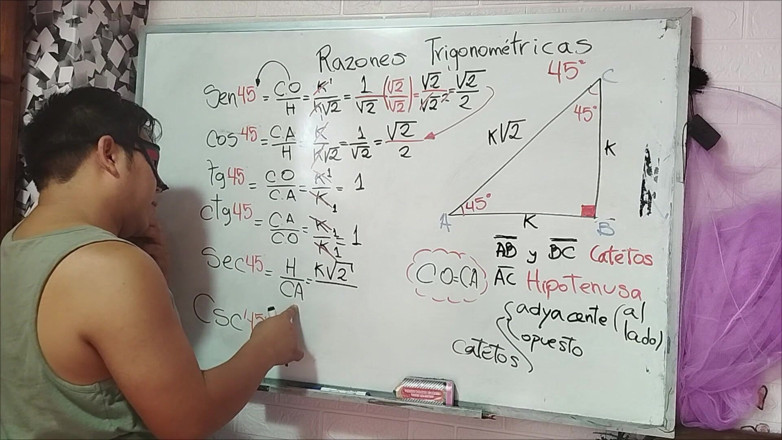 Razones Trigonométricas
Sen45 = CO/H = K¹/K√2 = 1/√2 (√2/√2) = √2/√2² = √2/2
Cos45 = CA/H = K/K√2 = 1/√2 = √2/2
tg45 = CO/CA = K¹/K₁ = 1
ctg45 = CA/CO = K₁/K₁ = 1
Sec45 = H/CA = K√2
Csc45
45° C
45°
K√2
K
A 45°
K
B
AB y BC Catetos
CO=CA
AC Hipotenusa
Catetos { adyacente (al lado)
opuesto